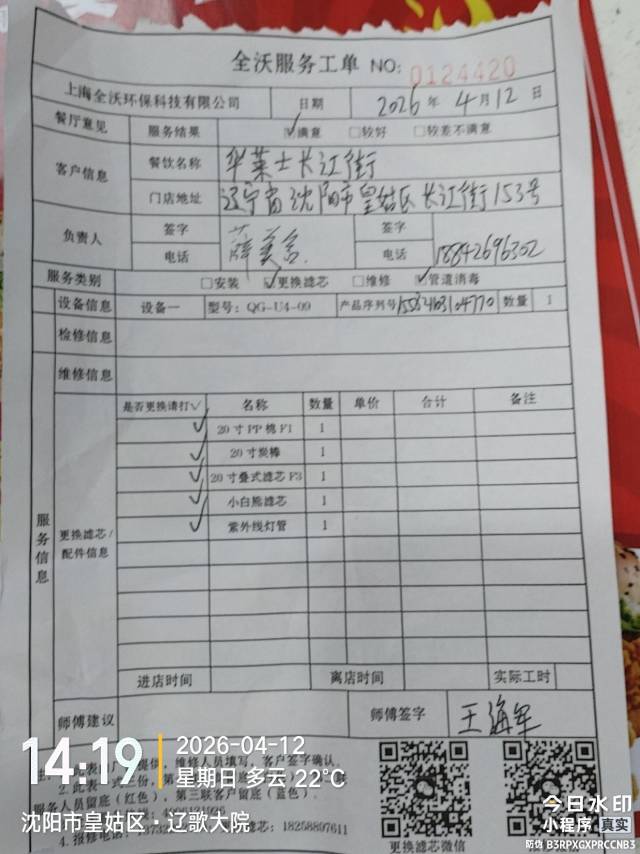 全沃服务工单 NO: 0124420
上海全沃环保科技有限公司 日期 2026年4月12日
餐厅意见 服务结果 ☑满意 □较好 □较差不满意
客户信息 餐饮名称 华莱士长江街
门店地址 辽宁省沈阳市皇姑区长江街153号
负责人 签字 签字
电话 电话 18842696302
服务类别 □安装 ☑更换滤芯 □维修 ☑管道消毒
设备信息 设备一 型号:QG-U4-09 产品序列号 数量 1
检修信息
维修信息
服务信息
更换滤芯/配件信息
是否更换请打√ 名称 数量 单价 合计 备注
√ 20寸PP棉F1 1
√ 20寸炭棒 1
√ 20寸叠式滤芯F3 1
√ 小白熊滤芯 1
√ 紫外线灯管 1
进店时间 离店时间 实际工时
师傅建议 师傅签字 王海军
维修人员填写,客户签字确认。
2. 此表一式三份,
服务人员留底(红色),第三联客户留底(蓝色)。
4. 报修电话: 滤芯:18258897611
更换滤芯微信
14:19
2026-04-12
星期日 多云 22℃
沈阳市皇姑区·辽歌大院
今日水印
小程序 真实
防伪 B3RPXGXPRCCNB3